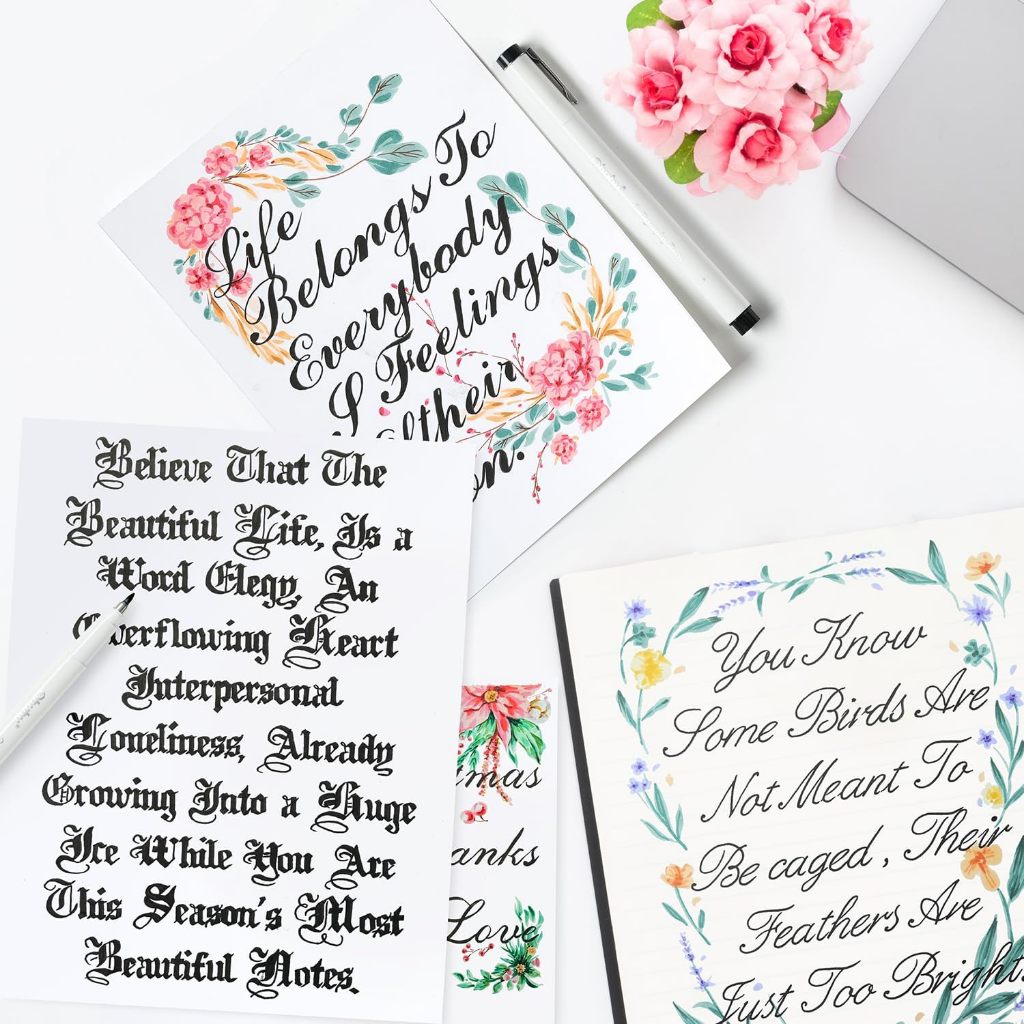 Life
Belongs To
Everybody
I Feelings
their
on.
Believe That The
Beautiful Life, Is a
Word Elegy, An
Overflowing Heart
Interpersonal
Loneliness, Already
Growing Into a Huge
Ice While You Are
This Season's Most
Beautiful Notes.
mas
anks
Love
You Know
Some Birds Are
Not Meant To
Be caged, Their
Feathers Are
Just Too Bright